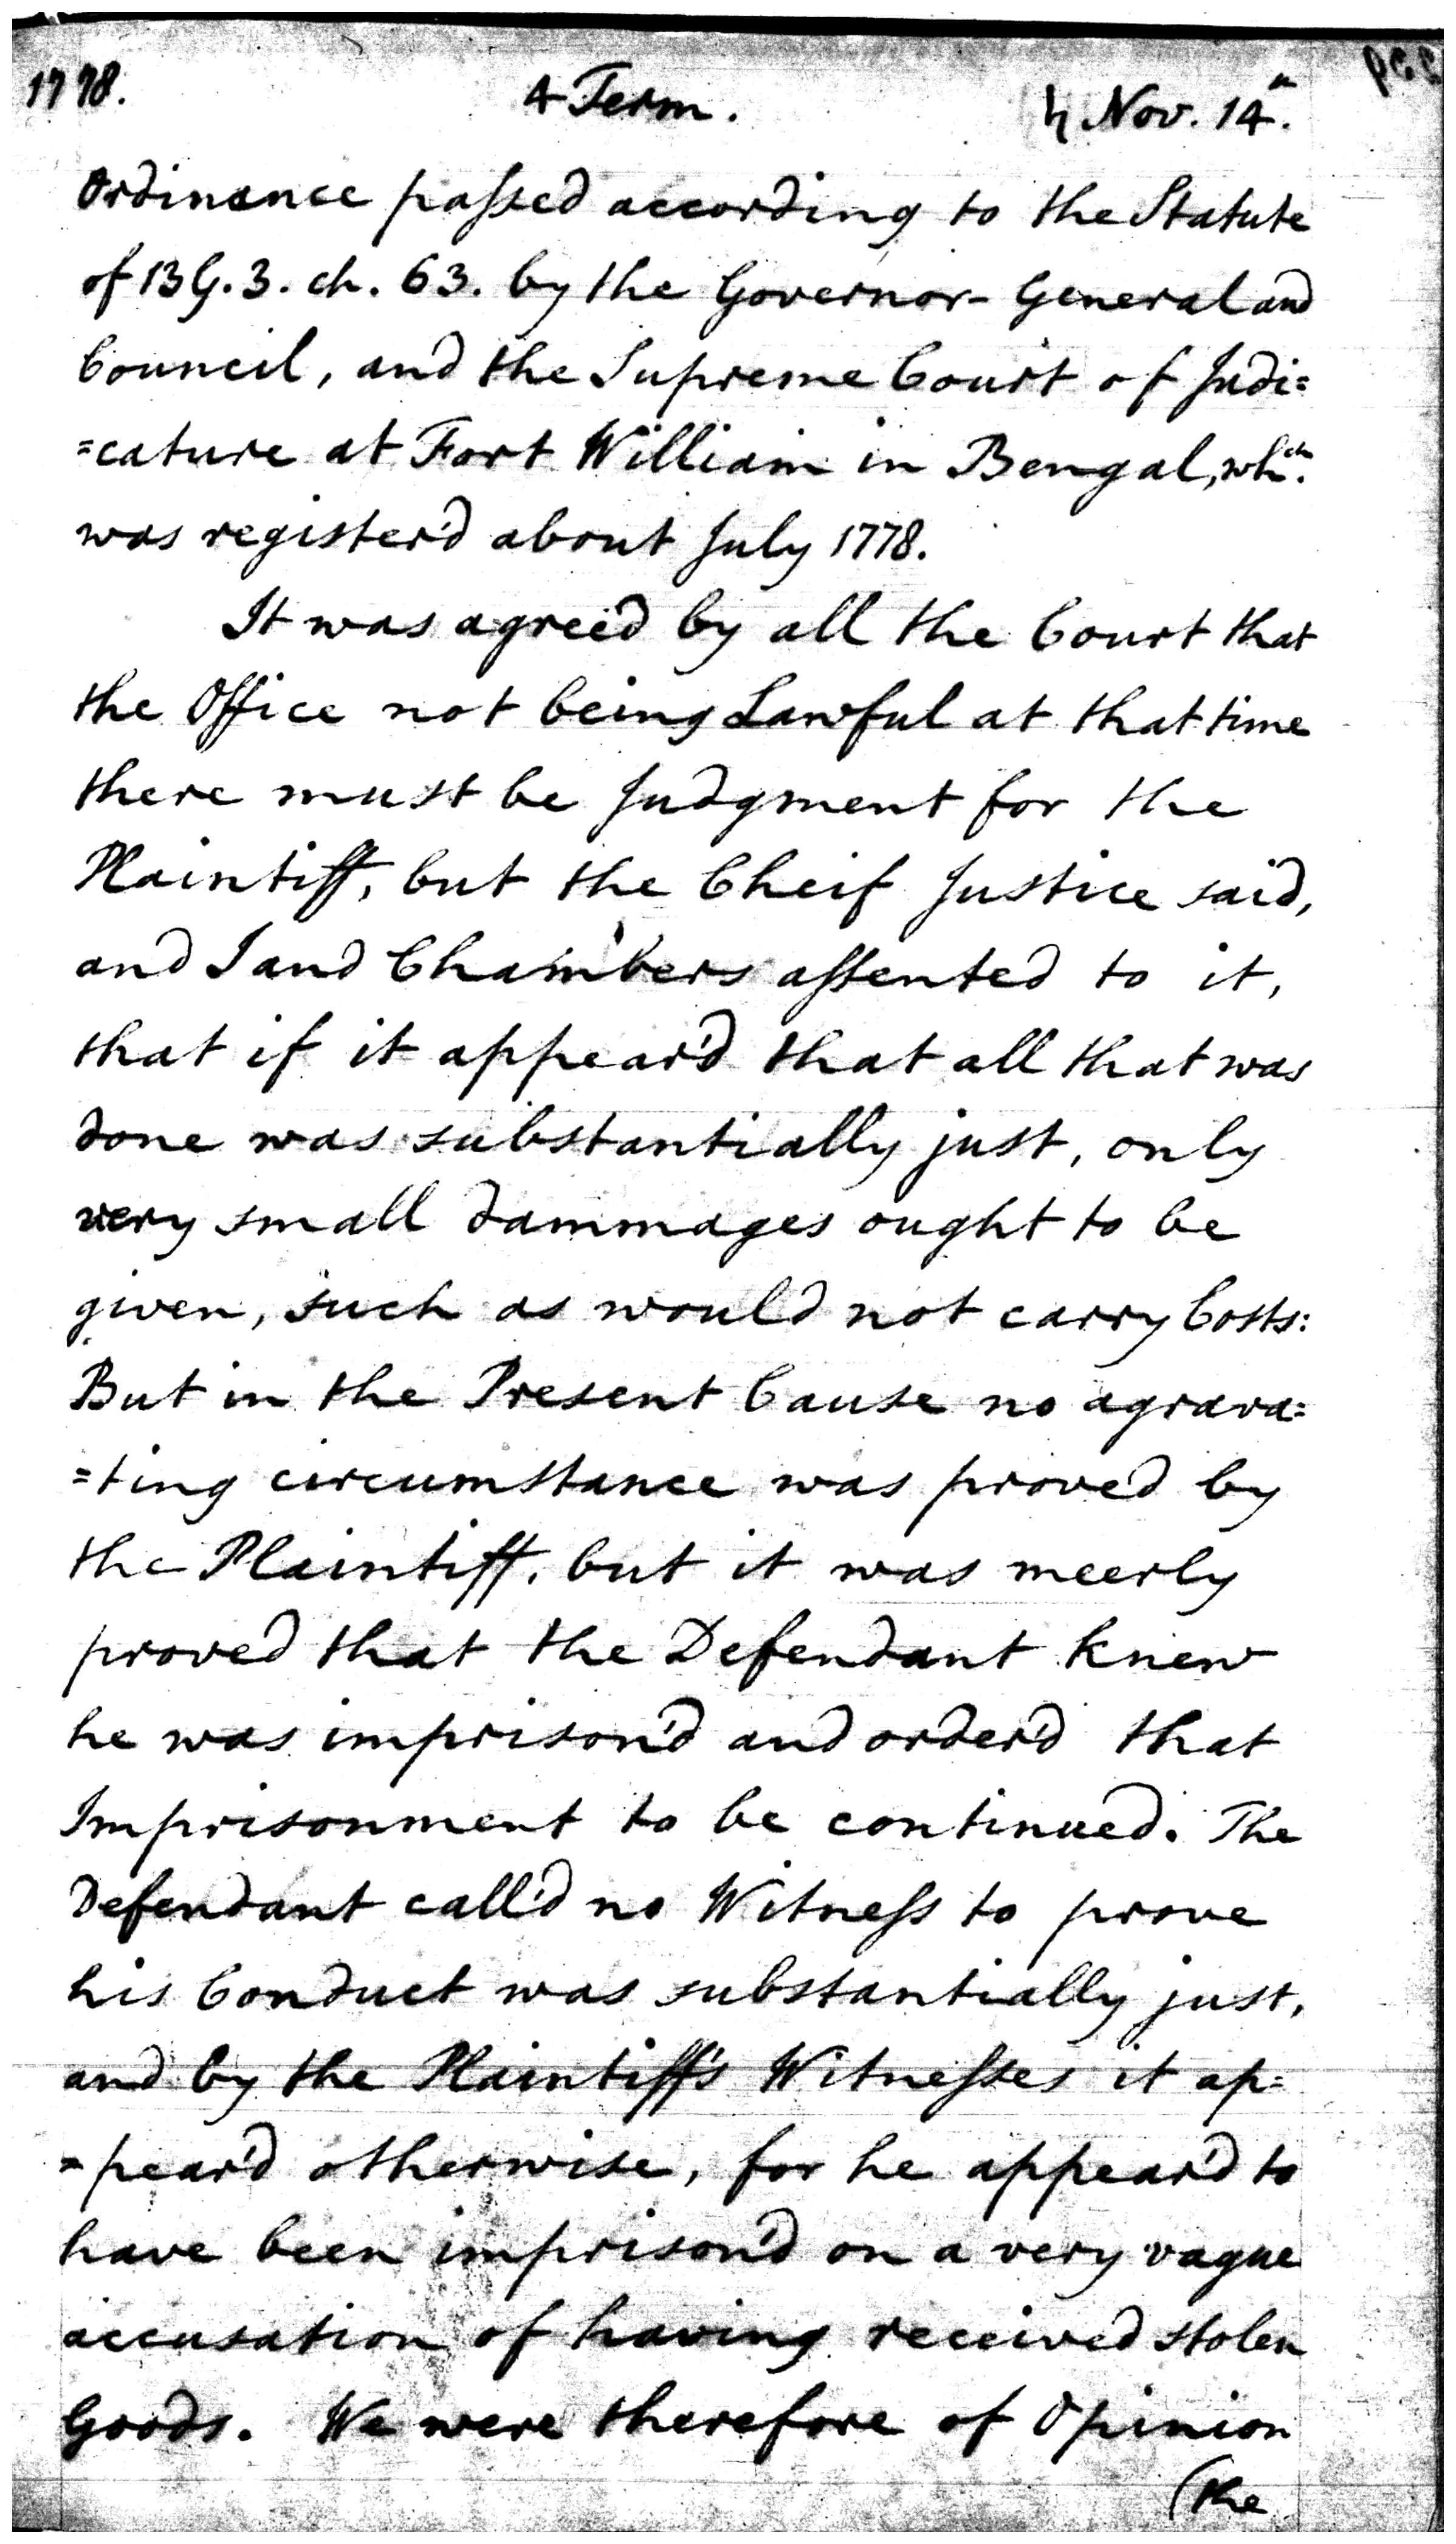 1778. 4 Term. ♄ Nov. 14th.
Ordinance paſsed according to the Statute
of 13 G. 3. ch. 63. by the Governor-General and
Council, and the Supreme Court of Judi=
=cature at Fort William in Bengal, whch.
was register'd about July 1778.
It was agreed by all the Court that
the Office not being Lawful at that time
there must be Judgment for the
Plaintiff, but the Cheif Justice said,
and I and Chambers aſsented to it,
that if it appear'd that all that was
done was substantially just, only
very small dammages ought to be
given, such as would not carry Costs:
But in the Present Cause no agrava=
=ting circumstance was proved by
the Plaintiff, but it was meerly
proved that the Defendant knew
he was imprison'd and order'd that
Imprisonment to be continued. The
Defendant call'd no Witneſs to prove
his Conduct was substantially just,
and by the Plaintiff's Witneſses it ap=
=pear'd otherwise, for he appear'd to
have been imprison'd on a very vague
accusation of having received stolen
Goods. We were therefore of Opinion
(the